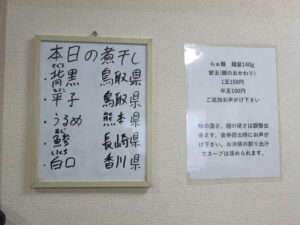 本日の煮干し
・背黒 鳥取県
・平子 鳥取県
・うるめ 熊本県
・鯵 長崎県
・白口 香川県
らぁ麺 麺量140g
替玉(麺のおかわり)
1玉150円
半玉100円
ご追加お声がけ下さい
味の濃さ、麺の硬さは調整出
来ます。食券提出時にお声が
け下さい。お冷横の割り出汁
でスープは薄められます。